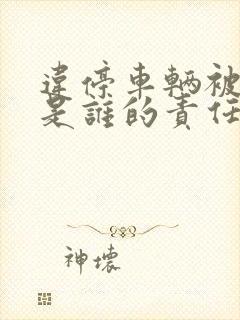 違停車輛被
是誰的責任
神壞